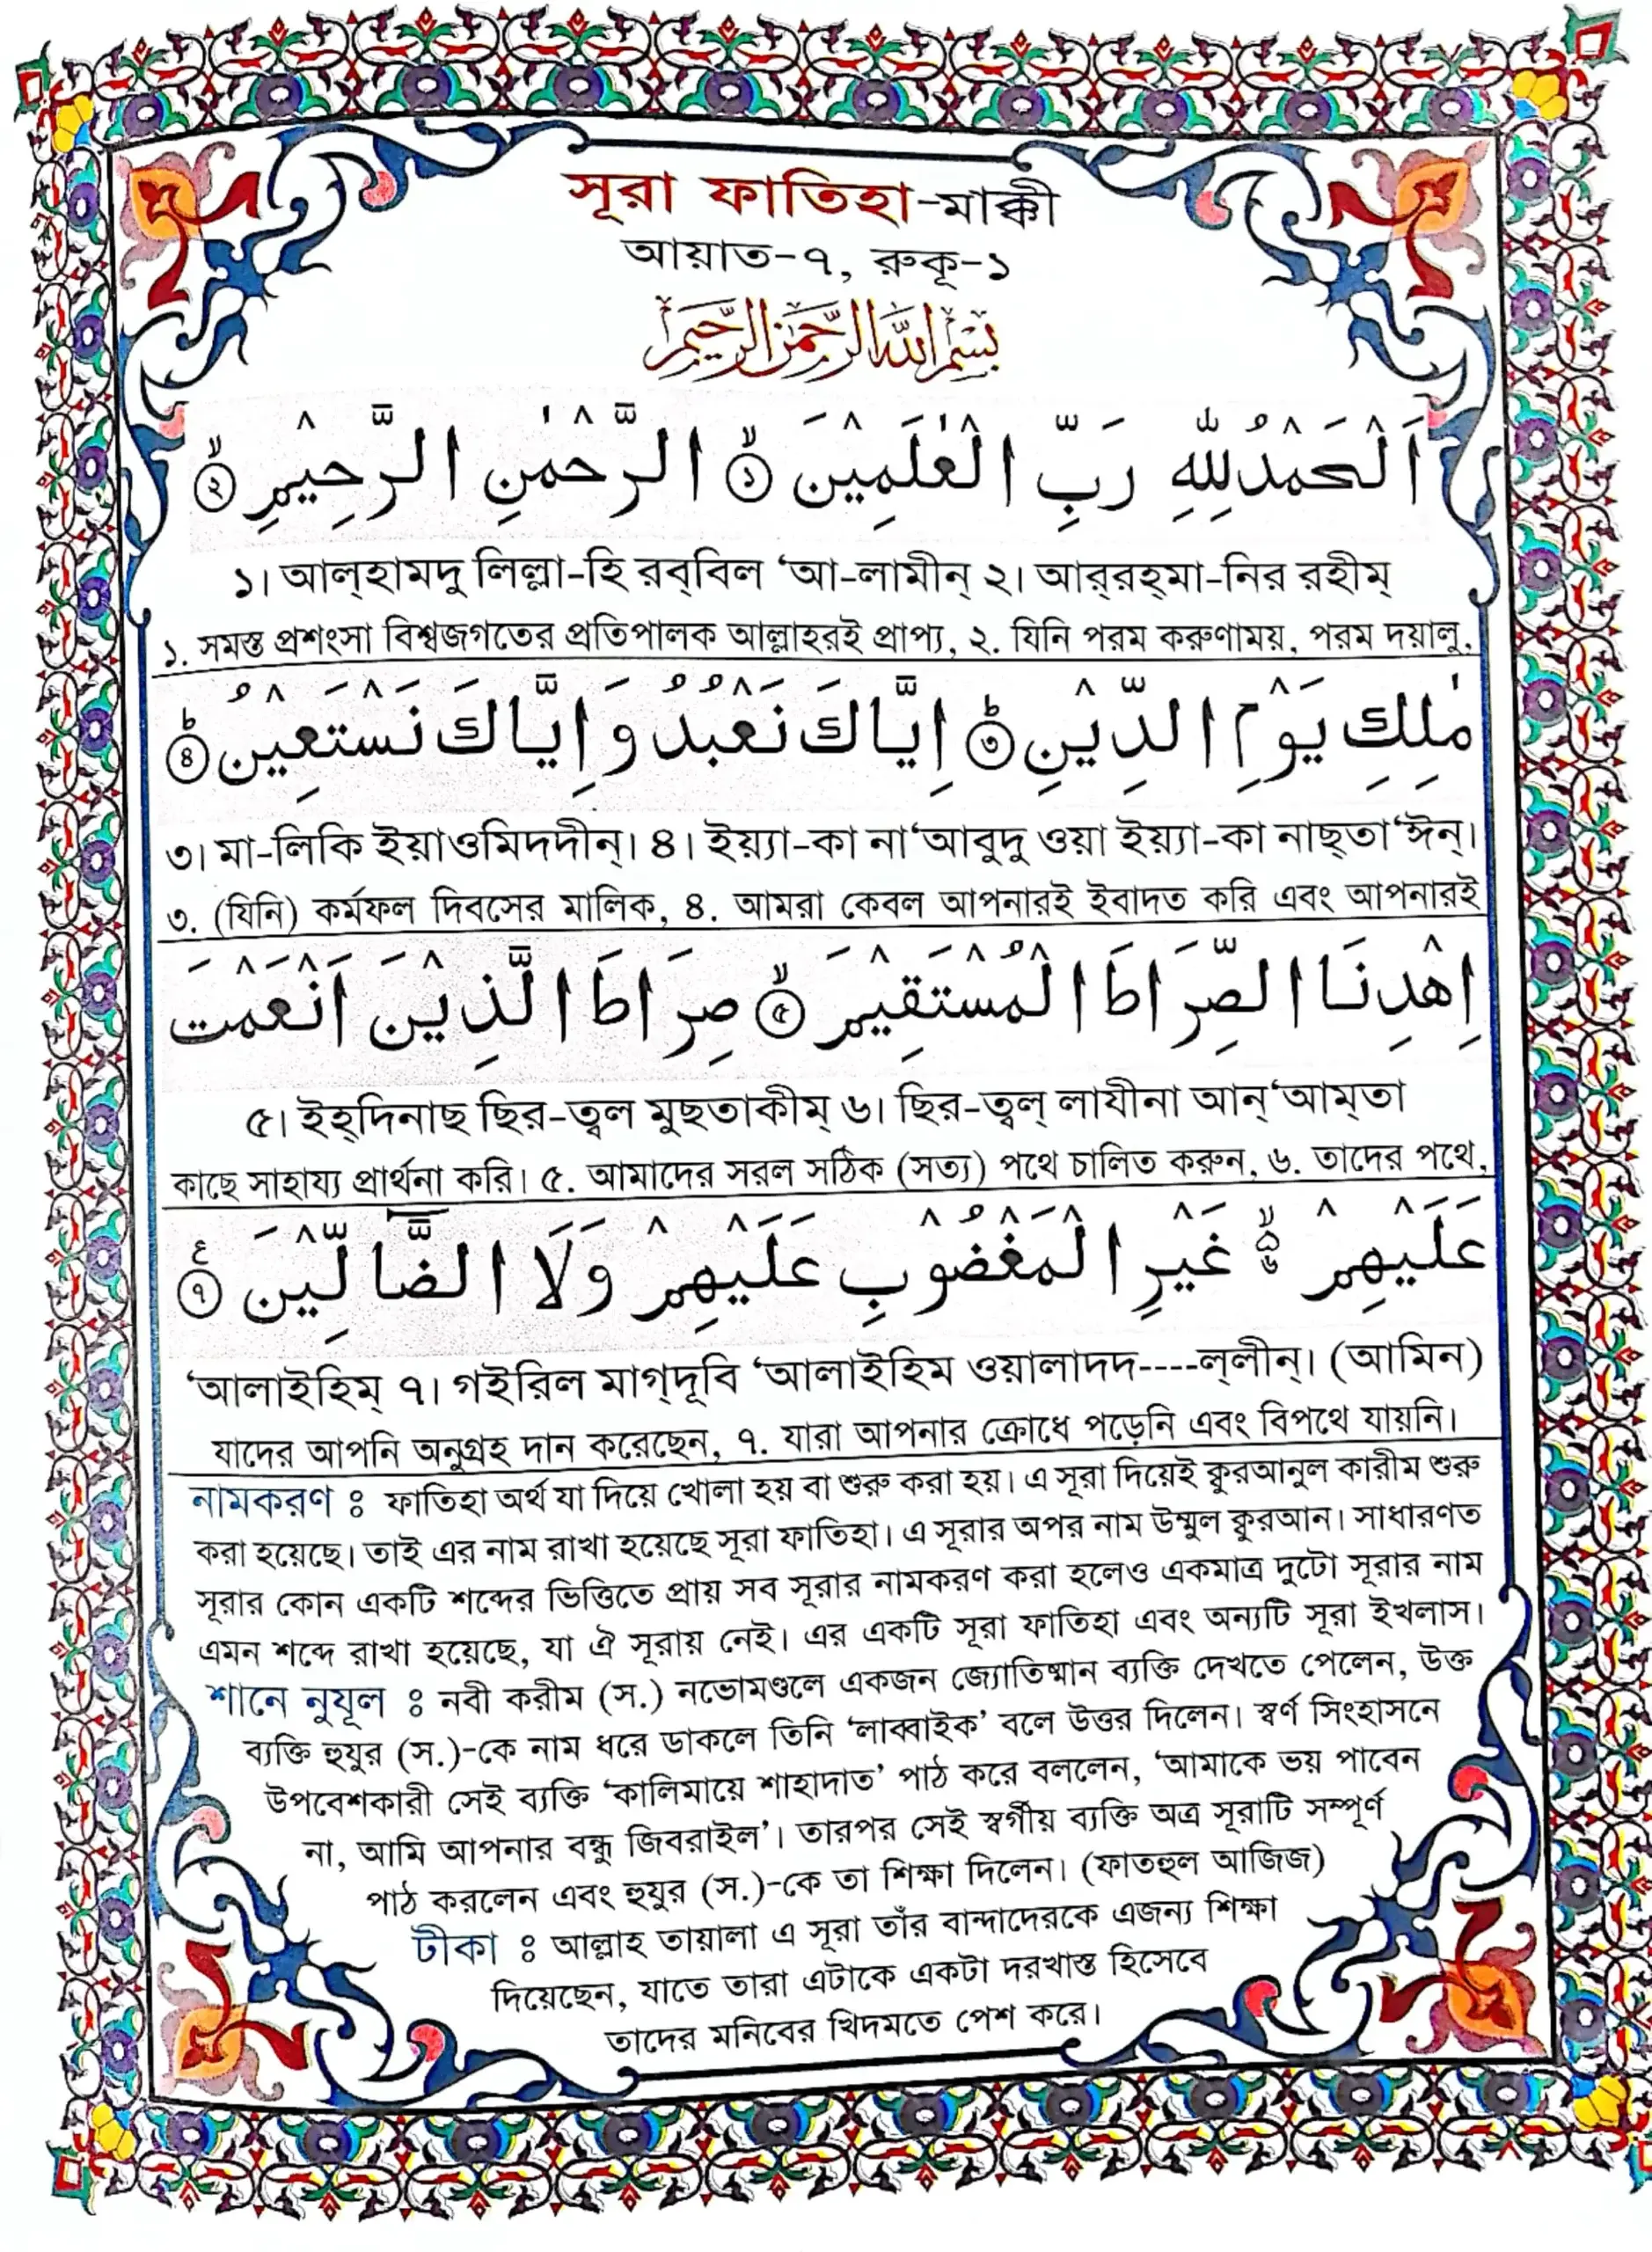 সূরা ফাতিহা-মাক্কী
আয়াত-৭, রুকূ-১
بِسْمِ اللّٰهِ الرَّحْمٰنِ الرَّحِيْمِ
اَلْحَمْدُ لِلّٰهِ رَبِّ الْعٰلَمِيْنَ ۙ﴿١﴾ الرَّحْمٰنِ الرَّحِيْمِ ۙ﴿٢﴾
১। আল্‌হামদু লিল্লা-হি রব্‌বিল ‘আ-লামীন্‌ ২। আর্‌রহ্‌মা-নির রহীম্‌
১. সমস্ত প্রশংসা বিশ্বজগতের প্রতিপালক আল্লাহরই প্রাপ্য, ২. যিনি পরম করুণাময়, পরম দয়ালু,
مٰلِكِ يَوْمِ الدِّيْنِ ؕ﴿٣﴾ اِيَّاكَ نَعْبُدُ وَاِيَّاكَ نَسْتَعِيْنُ ؕ﴿۴﴾
৩। মা-লিকি ইয়াওমিদদীন্‌। ৪। ইয়্যা-কা না‘আবুদু ওয়া ইয়্যা-কা নাছ্‌তা‘ঈন্‌।
৩. (যিনি) কর্মফল দিবসের মালিক, ৪. আমরা কেবল আপনারই ইবাদত করি এবং আপনারই
اِهْدِنَا الصِّرَاطَ الْمُسْتَقِيْمَ ۙ﴿۵﴾ صِرَاطَ الَّذِيْنَ اَنْعَمْتَ
৫। ইহ্‌দিনাছ ছির-ত্বল মুছতাকীম্‌ ৬। ছির-ত্বল্‌ লাযীনা আন্‌‘আম্‌তা
কাছে সাহায্য প্রার্থনা করি। ৫. আমাদের সরল সঠিক (সত্য) পথে চালিত করুন, ৬. তাদের পথে,
عَلَيْهِمْ ۙ۬ۦ غَيْرِ الْمَغْضُوْبِ عَلَيْهِمْ وَلَا الضَّآلِّيْنَ ﴿٧﴾ ع
‘আলাইহিম্‌ ৭। গইরিল মাগ্‌দূবি ‘আলাইহিম ওয়ালাদদ----ল্‌লীন্‌। (আমিন)
যাদের আপনি অনুগ্রহ দান করেছেন, ৭. যারা আপনার ক্রোধে পড়েনি এবং বিপথে যায়নি।
নামকরণ ঃ ফাতিহা অর্থ যা দিয়ে খোলা হয় বা শুরু করা হয়। এ সূরা দিয়েই কুরআনুল কারীম শুরু
করা হয়েছে। তাই এর নাম রাখা হয়েছে সূরা ফাতিহা। এ সূরার অপর নাম উম্মুল কুরআন। সাধারণত
সূরার কোন একটি শব্দের ভিত্তিতে প্রায় সব সূরার নামকরণ করা হলেও একমাত্র দুটো সূরার নাম
এমন শব্দে রাখা হয়েছে, যা ঐ সূরায় নেই। এর একটি সূরা ফাতিহা এবং অন্যটি সূরা ইখলাস।
শানে নুযূল ঃ নবী করীম (স.) নভোমণ্ডলে একজন জ্যোতিষ্মান ব্যক্তি দেখতে পেলেন, উক্ত
ব্যক্তি হুযুর (স.)-কে নাম ধরে ডাকলে তিনি ‘লাব্বাইক’ বলে উত্তর দিলেন। স্বর্ণ সিংহাসনে
উপবেশকারী সেই ব্যক্তি ‘কালিমায়ে শাহাদাত’ পাঠ করে বললেন, ‘আমাকে ভয় পাবেন
না, আমি আপনার বন্ধু জিবরাইল’। তারপর সেই স্বর্গীয় ব্যক্তি অত্র সূরাটি সম্পূর্ণ
পাঠ করলেন এবং হুযুর (স.)-কে তা শিক্ষা দিলেন। (ফাতহুল আজিজ)
টীকা ঃ আল্লাহ তায়ালা এ সূরা তাঁর বান্দাদেরকে এজন্য শিক্ষা
দিয়েছেন, যাতে তারা এটাকে একটা দরখাস্ত হিসেবে
তাদের মনিবের খিদমতে পেশ করে।